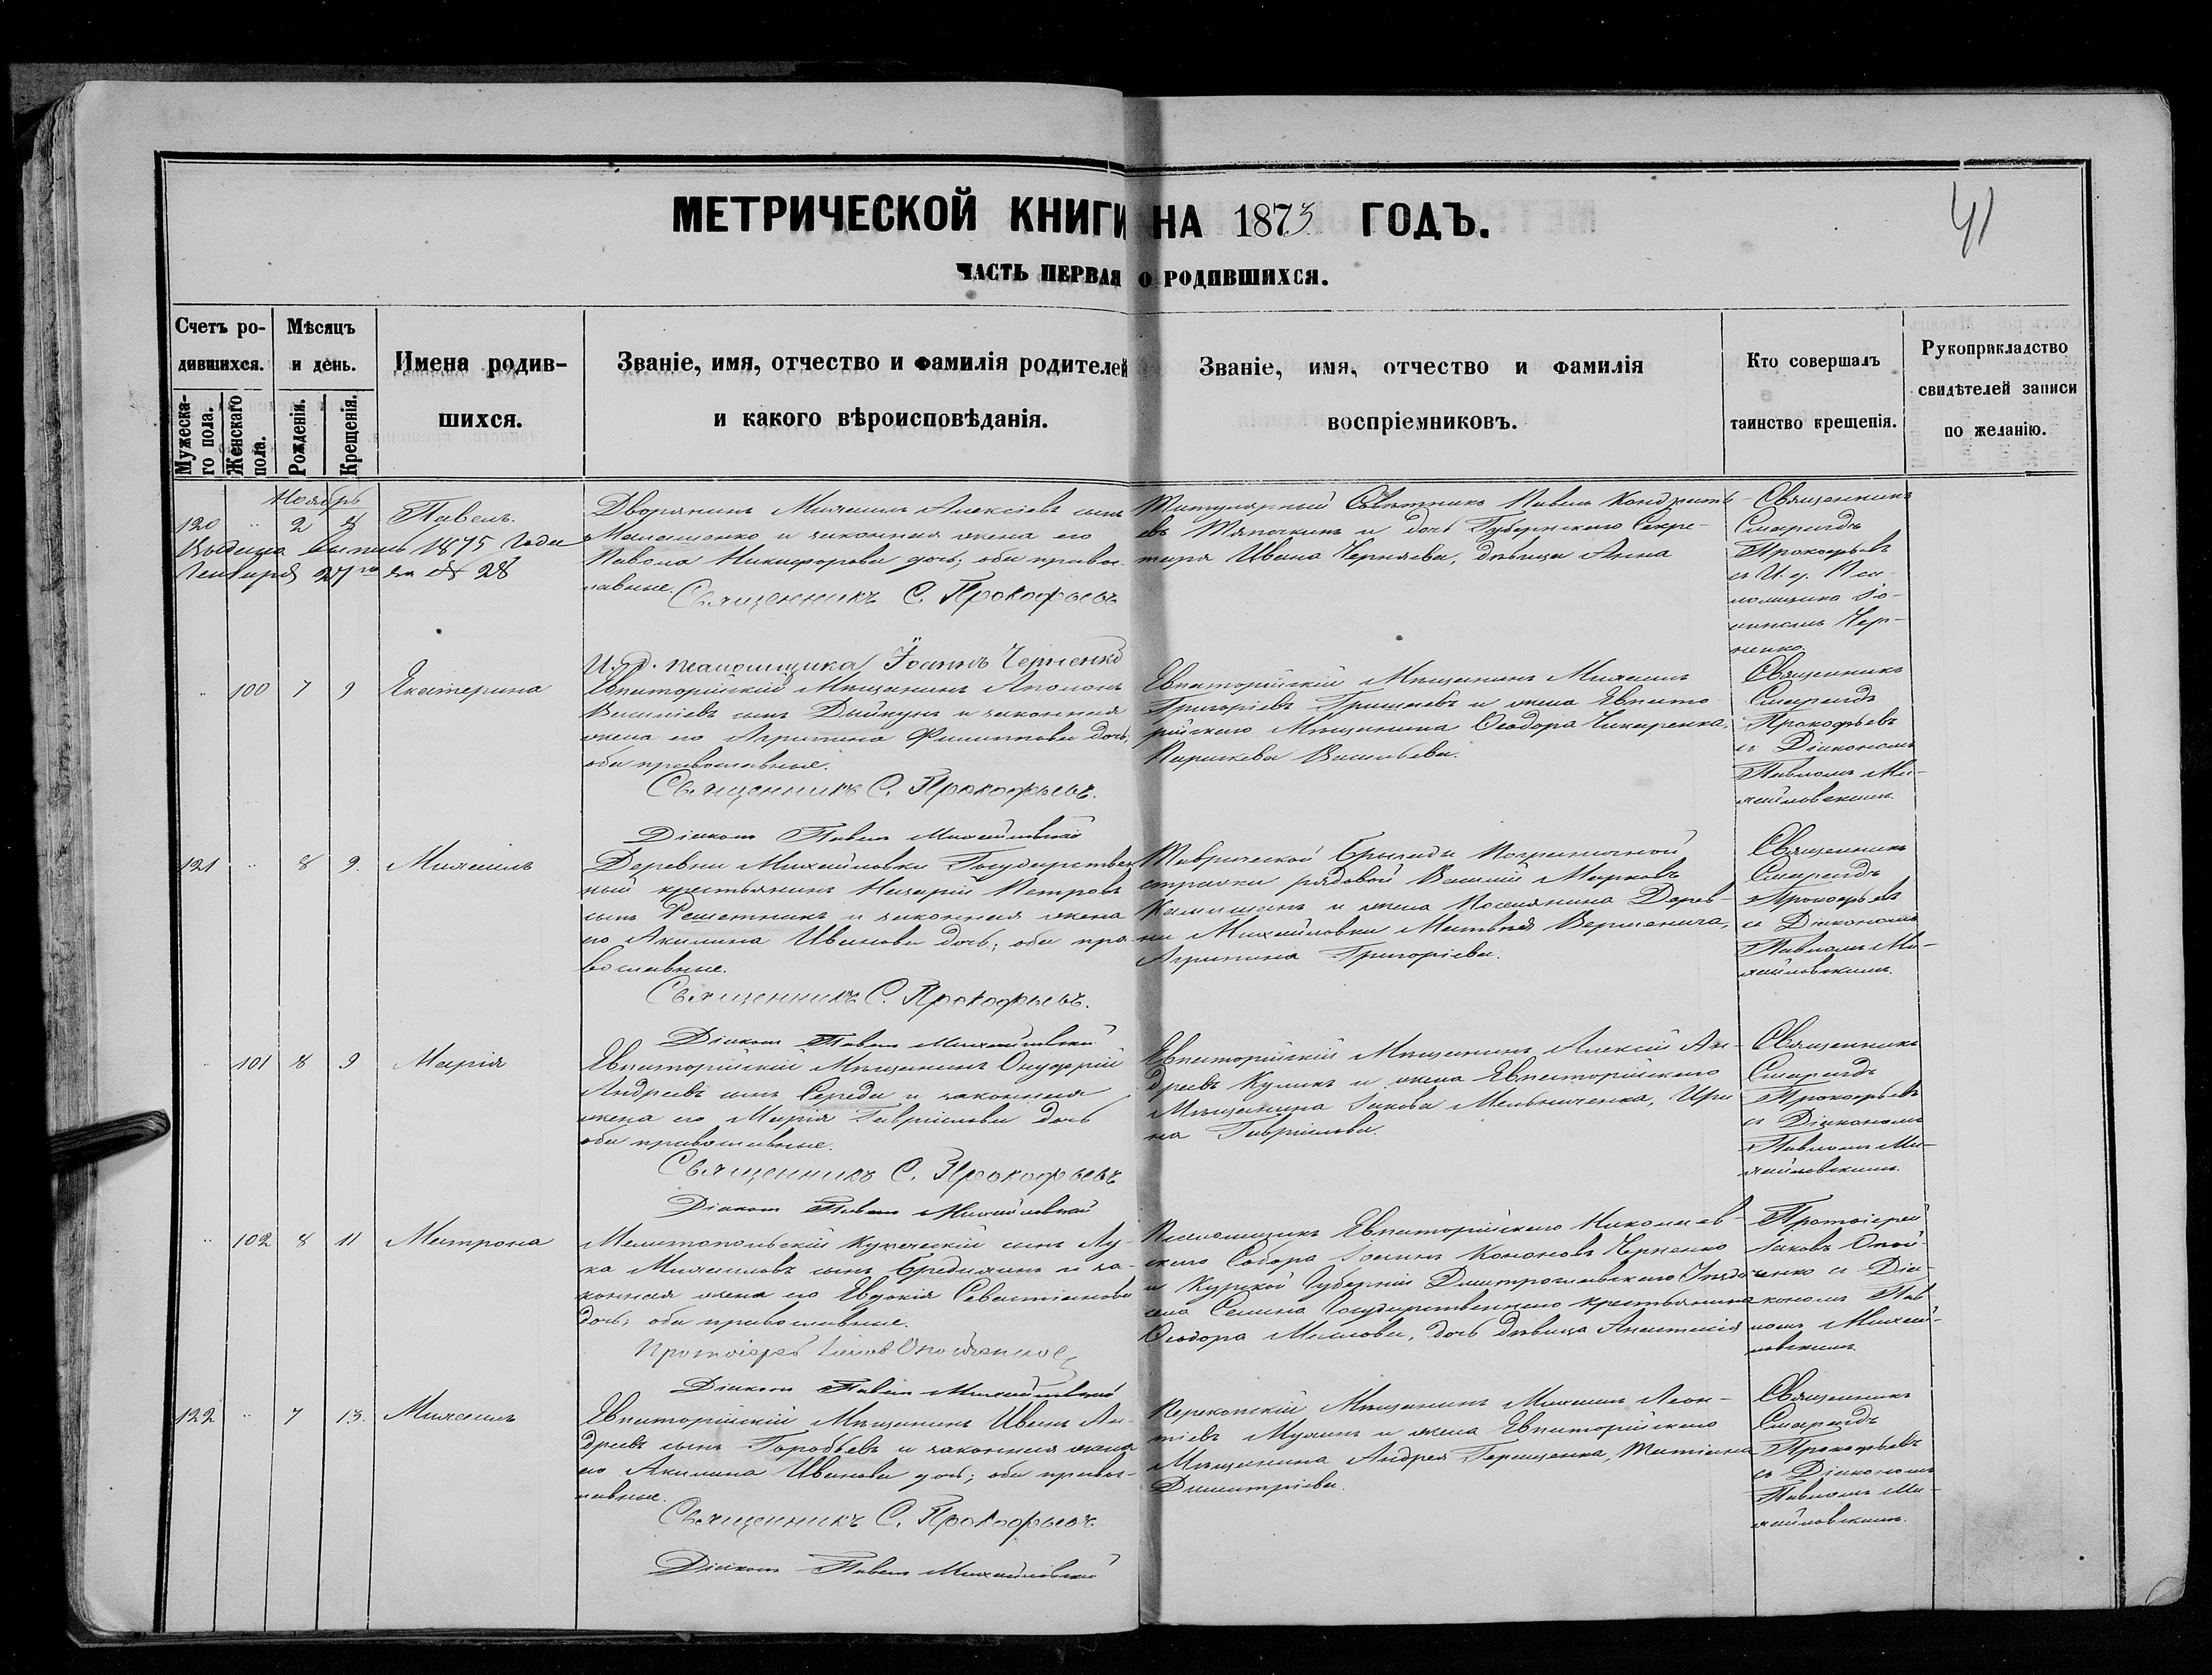 41
МЕТРИЧЕСКОЙ КНИГИ НА 1873 ГОДЪ.
ЧАСТЬ ПЕРВАЯ О РОДИВШИХСЯ.
Счетъ ро-
дившихся.
Мужеска-
го пола.
Женскаго
пола.
Мѣсяцъ
и день.
Рожденія.
Крещенія.
Имена родив-
шихся.
Званіе, имя, отчество и фамилія родителей
и какого вѣроисповѣданія.
Званіе, имя, отчество и фамилія
воспріемниковъ.
Кто совершалъ
таинство крещенія.
Рукоприкладство
свидѣтелей записи
по желанію.
Ноябрь
120 " 2 8 Павелъ.
Выдана выпись 1875 года
Генваря 27го за № 28
Дворянинъ Михаилъ Алексіевъ сынъ
и законная жена его
Павола Никифорова дочь; оба правос-
лавные.
Священникъ С. Прокофьевъ
И. д. псаломщика Іоаннъ Черненко
Титулярный Совѣтникъ Павелъ Кондрать-
евъ Тяпочкинъ и дочь Губернскаго Секре-
таря Ивана Черняева, дѣвица Анна
Священникъ
Смарагдъ
Прокофьевъ
съ И. д. Пса-
ломщика Іо-
анномъ Чер-
ненко.
" 100 7 9 Екатерина
Евпаторійскій Мѣщанинъ Аполонъ
Василіевъ сынъ Дыйкунъ и законная
жена его Агрипина Филипова дочь,
оба православные.
Священникъ С. Прокофьевъ.
Діаконъ Павелъ Михайловскій
Евпаторійскій Мѣщанинъ Михаилъ
Григоріевъ Грищаевъ и жена Евпато-
рійскаго Мѣщанина Ѳеодора Чикаренка,
Параскева Васильева.
Священникъ
Смарагдъ
Прокофьевъ
съ Діакономъ
Павломъ Ми-
хайловскимъ.
121 " 8 9. Михаилъ
Деревни Михайловки Государствен
ный крестьянинъ Назарій Петровъ
сынъ Решетникъ и законная жена
его Акилина Иванова дочь; оба пра-
вославные.
Священникъ С. Прокофьевъ.
Діаконъ Павелъ Михайловскій
Таврической бригады Пограничной
стражи рядовой Василій Марковъ
и жена Поселянина Дерев-
ни Михайловки Матвѣя Верменича,
Агрипина Григоріева.
Священникъ
Смарагдъ
Прокофьевъ
съ Діакономъ
Павломъ Ми-
хайловскимъ.
" 101 8 9 Марія
Евпаторійскій Мѣщанинъ Онуфрій
Андреевъ сынъ Середа и законная
жена его Марія Гавріилова дочь
оба православные.
Священникъ С. Прокофьевъ
Діаконъ Павелъ Михайловскій
Евпаторійскій Мѣщанинъ Алексій Ан-
дреевъ Куликъ и жена Евпаторійскаго
Мѣщанина Іакова Мельниченка, Ири
на Гавріилова.
Священникъ
Смарагдъ
Прокофьевъ
съ Діакономъ
Павломъ Ми-
хайловскимъ.
" 102 8 11 Матрона
Мелитопольскій Купеческій сынъ Лу-
ка Михаиловъ сынъ Бредихинъ и за-
конная жена его Евдокія Севастіанова
дочь; оба православные.
Протоіерей Іаковъ Опойченко
Діаконъ Павелъ Михайловскій
Псаломщикъ Евпаторійскаго Николаев-
скаго Собора Іоаннъ Кононовъ Черненко
и Курской Губерніи Дмитроглавскаго Уѣзда
села Селина Государственнаго крестьянина
Ѳеодора Маслова, дочь дѣвица Анастасія
Протоіерей
Іаковъ Опой-
ченко съ Діа-
кономъ Пав-
ломъ Михай-
ловскимъ
122 " 7 13. Михаилъ
Евпаторійскій Мѣщанинъ Иванъ Ан-
дреевъ сынъ Горобьевъ и законная жена
его Акилина Иванова дочь; оба правос-
лавные.
Священникъ С. Прокофьевъ
Діаконъ Павелъ Михайловскій
Перекопскій Мѣщанинъ Михаилъ Леон-
тіевъ Мухинъ и жена Евпаторійскаго
Мѣщанина Андрея Геращенка, Татіана
Димитріева.
Священникъ
Смарагдъ
Прокофьевъ
съ Діакономъ
Павломъ Ми-
хайловскимъ.